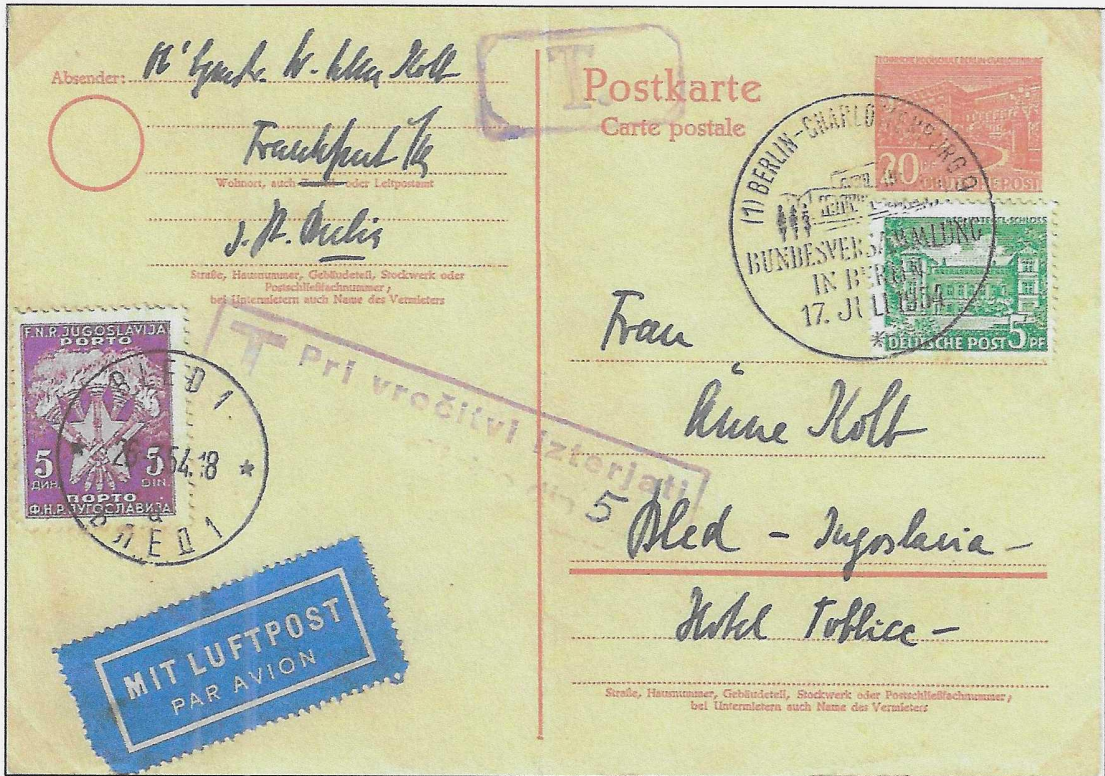 Absender:
Frankfurt
Wohnort, auch Zustell- oder Leitpostamt
Straße, Hausnummer, Gebäudeteil, Stockwerk oder
Postschließfachnummer;
bei Untermietern auch Name des Vermieters
T.
Postkarte
Carte postale
TECHNISCHE HOCHSCHULE BERLIN-CHARLOTTENBURG
20 DEUTSCHE POST
(1) BERLIN-CHARLOTTENBURG 9
BUNDESVERSAMMLUNG
IN BERLIN
17. JULI 1954
TEGEL-SCHLOSS
DEUTSCHE POST 5 PF
F.N.R. JUGOSLAVIJA
PORTO
5 5
ДИН. DIN.
ПОРТО
Ф.Н.Р. ЈУГОСЛАВИЈА
BLED 1
54.18
a
БЛЕД 1
T Pri vročitvi izterjati
din 5
MIT LUFTPOST
PAR AVION
Frau
Änne Kolb
Bled – Jugoslavia –
Hotel
Straße, Hausnummer, Gebäudeteil, Stockwerk oder Postschließfachnummer;
bei Untermietern auch Name des Vermieters